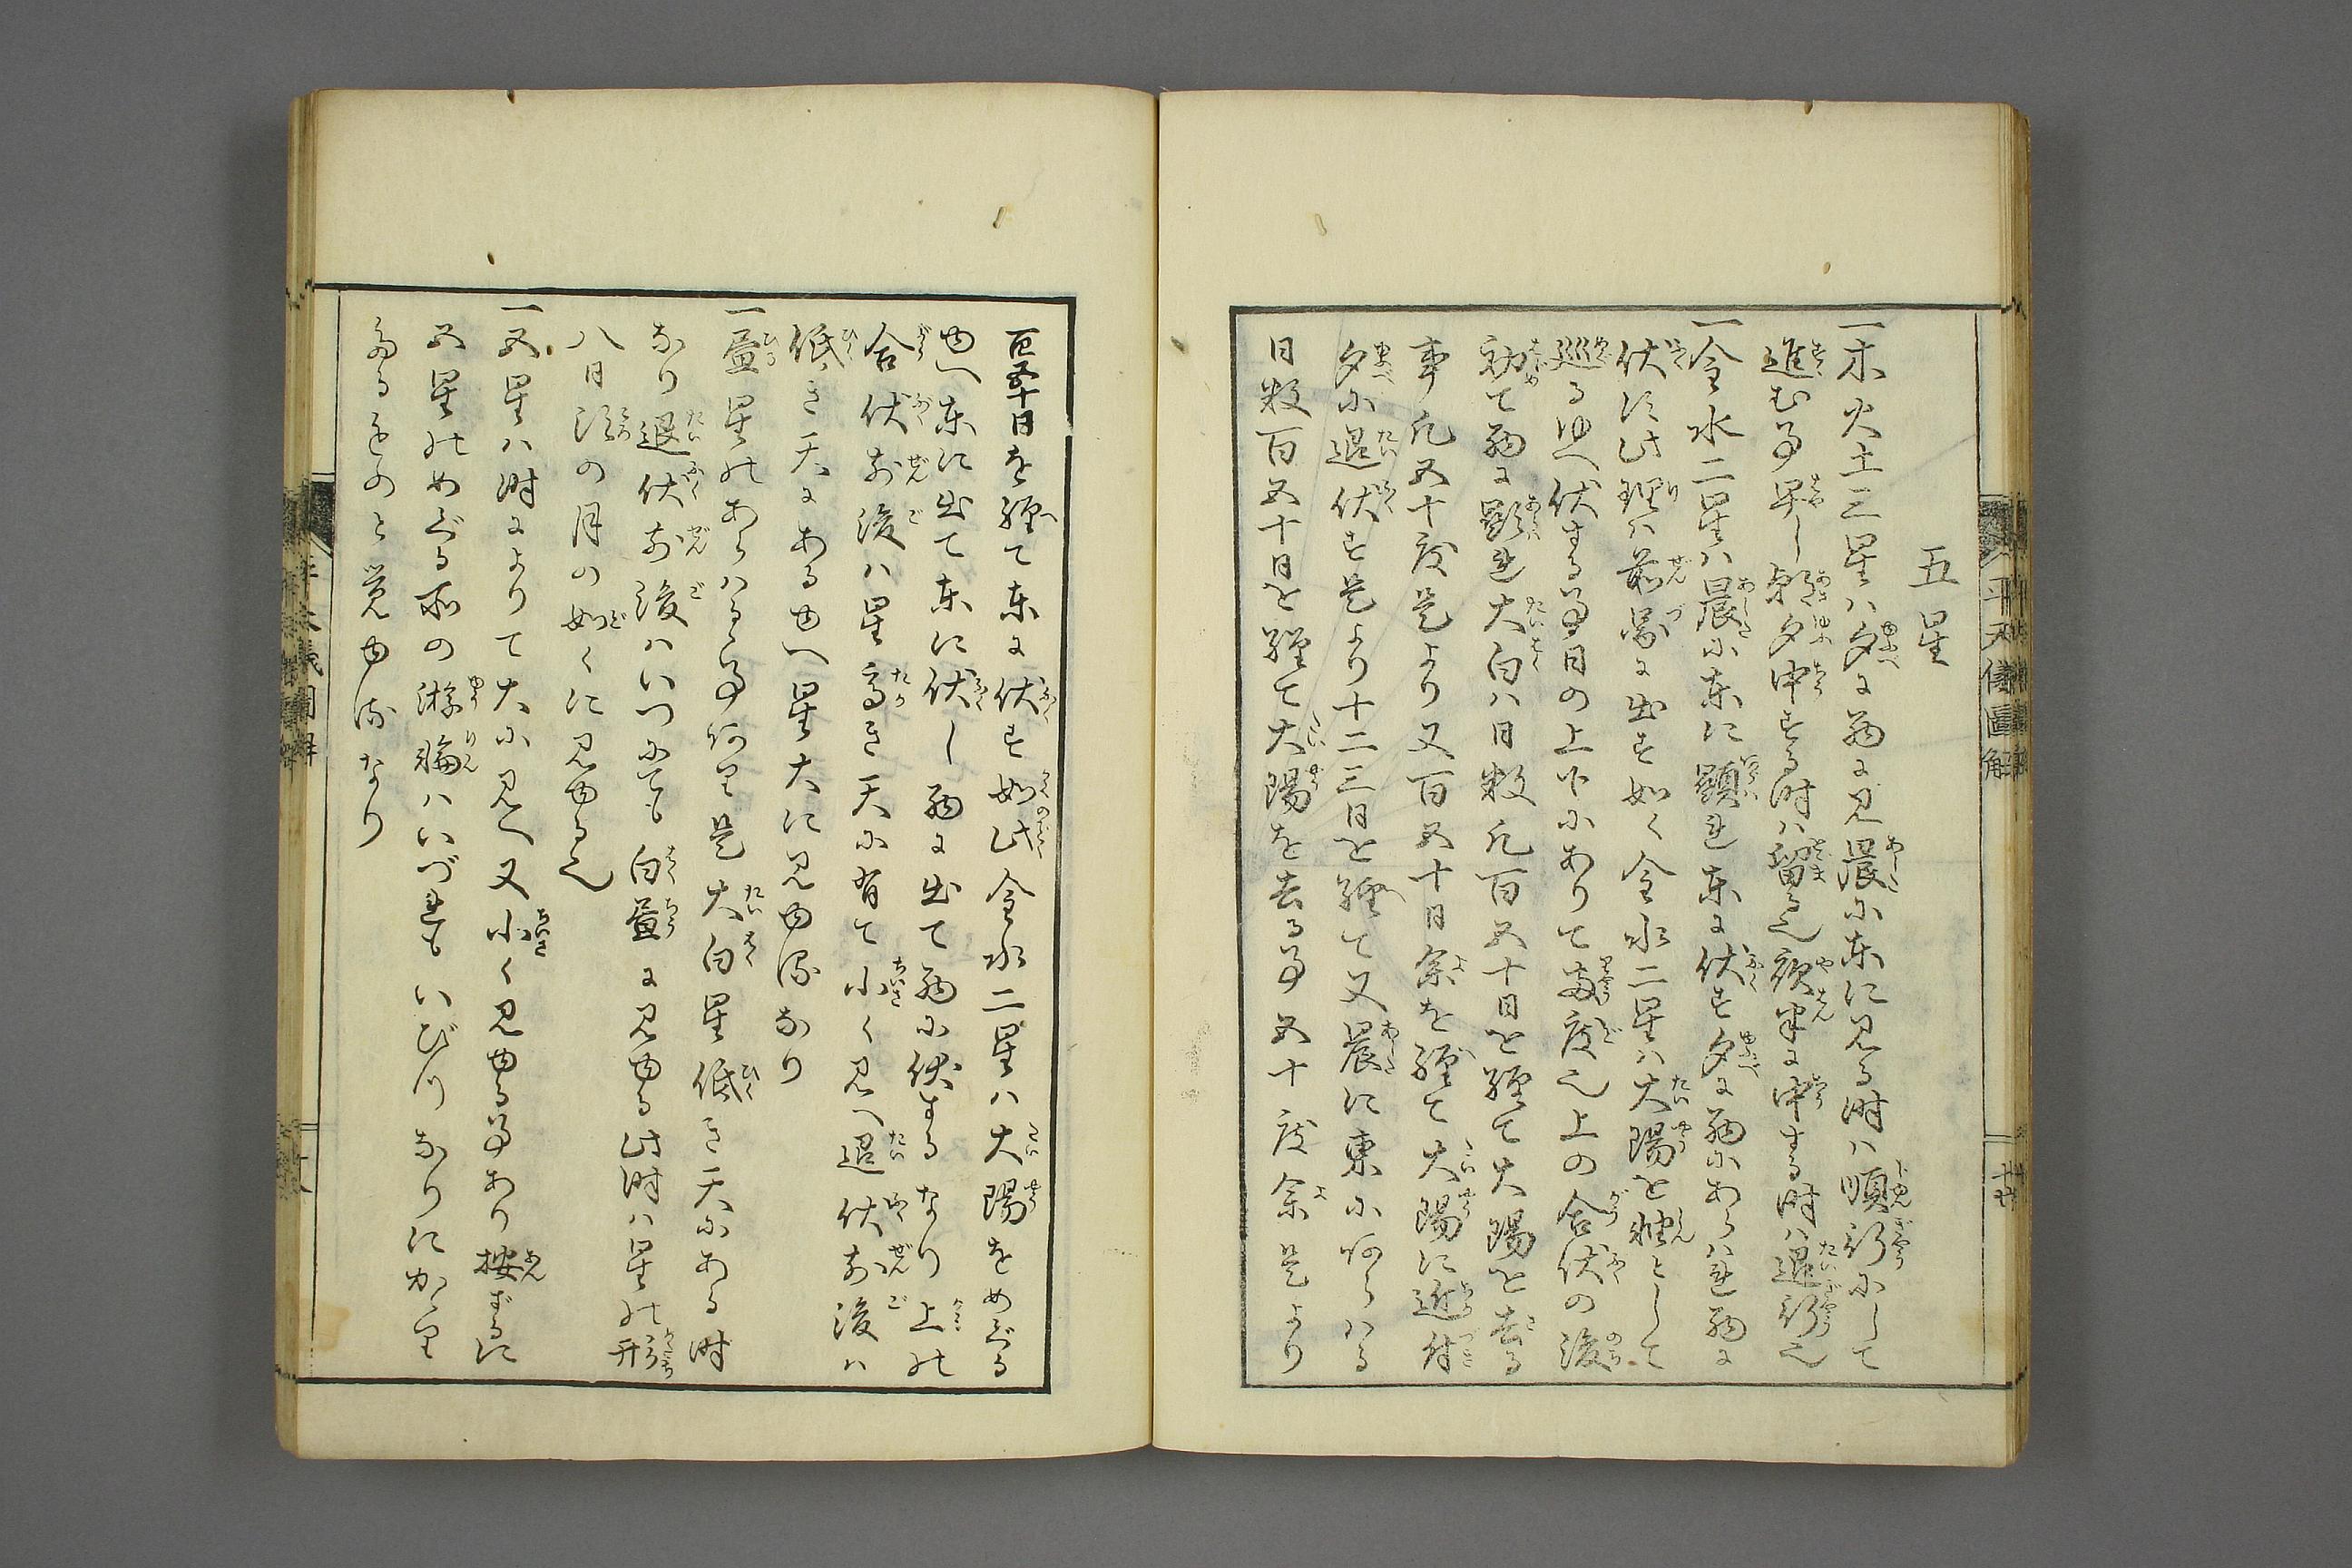 五星
一木火土三星ハ夕に西に見晨に東に見る時ハ順行にして
進む事早し朝夕中する時ハ留る也夜半に中する時ハ退行也
一金水二星ハ晨に東に顕れ東に伏す夕に西にあらハれ西に
伏す此理ハ前図に出す如く金水二星ハ大陽を軸として
巡るゆへ伏する事日の上下にありて両度也上の合伏の後
初て西に顕れ大白ハ日数凡百五十日を経て大陽を去る
事凡五十度是より又百五十日余を経て大陽に近付
夕に退伏す是より十二三日を経て又晨に東にあらハる
日数百五十日を経て大陽を去る事五十度余是より
百五十日を経て東に伏す如此金水二星ハ大陽をめぐる
ゆへ東に出て東に伏し西に出て西に伏するなり上の
合伏前後ハ星高き天に有て小く見へ退伏前後ハ
低き天にあるゆへ星大に見ゆるなり
一昼星のあらハるゝ事あり是大白星低き天にある時
なり退伏前後ハいつにても白昼に見ゆる此時ハ星の形
八日頃の月の如くに見ゆる也
一五星ハ時によりて大に見へ又小く見ゆる事あり按ずるに
五星のめぐる所の游輪ハいづれもいびつなりにかゝり
たるものと覚ゆるなり
平天儀図解